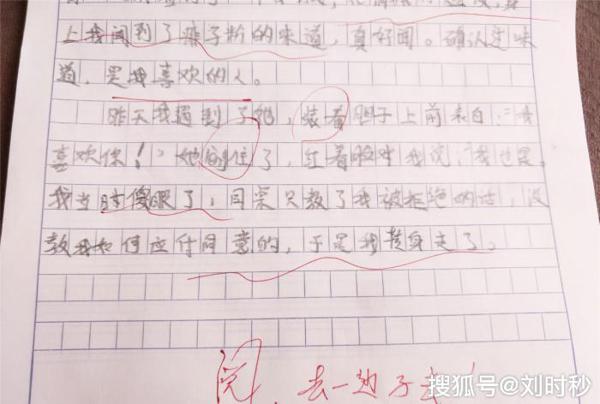 上我闻到了痱子粉的味道,真好闻。确认过味
道,是我喜欢的人。
昨天我遇到了她,装着胆子上前表白:“我
喜欢你!”她愣住了,红着脸对我说:“我也是。
我当时傻眼了,同桌只教了我被拒绝的话,没
教我如何应付同意的,于是我转身走了。
阅,去一边子去!
搜狐号@刘时秒